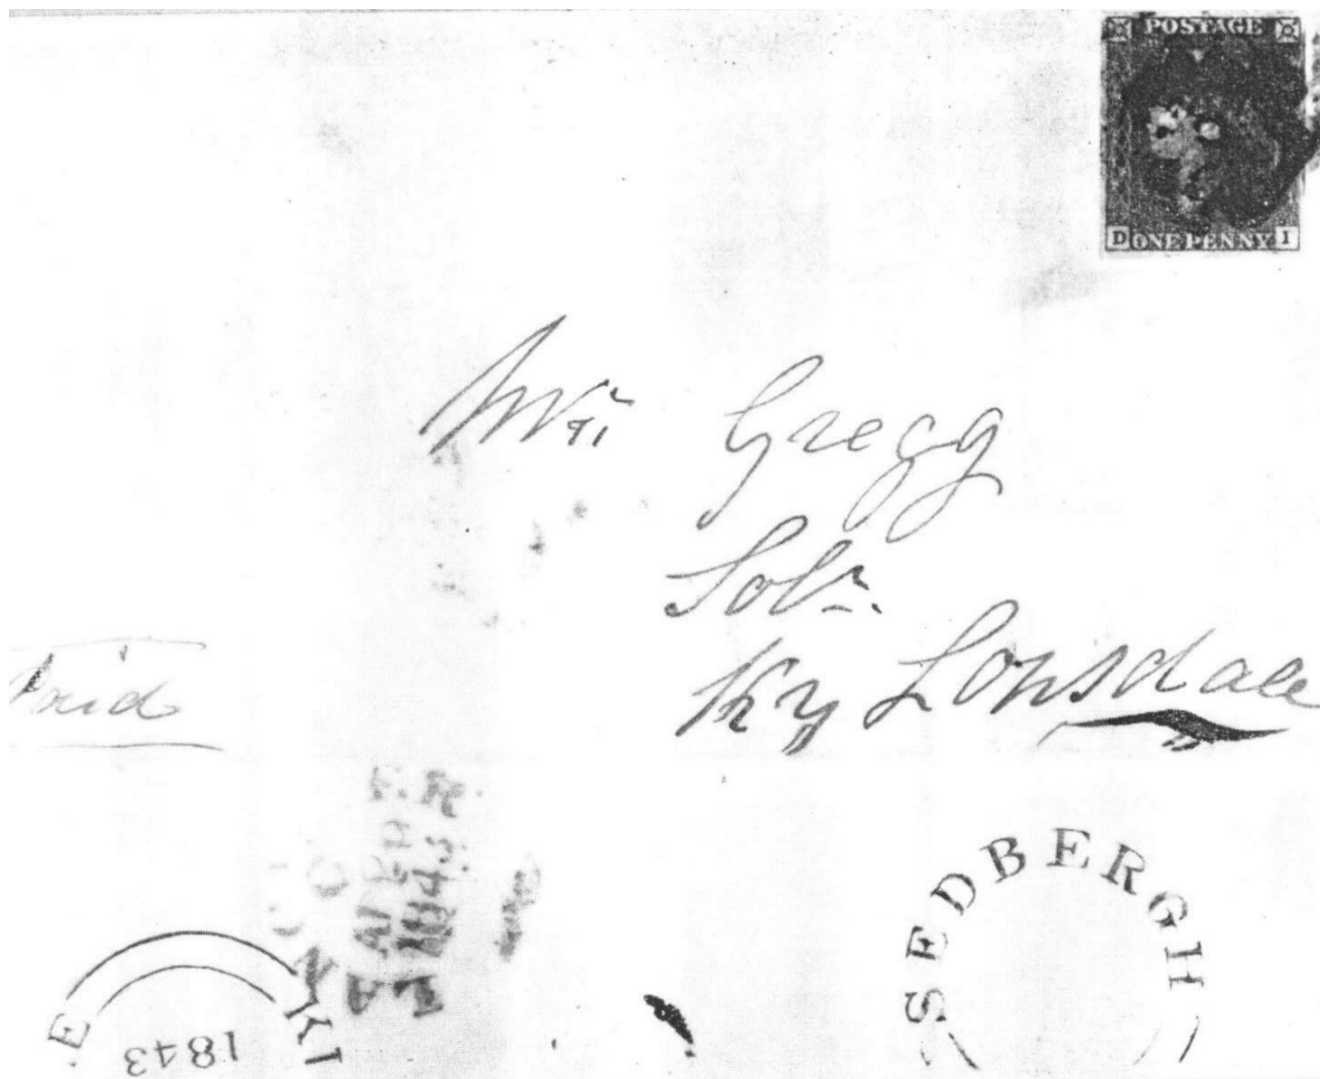 POSTAGE
D ONE PENNY I
Mr Gregg
Solr.
Ky Lonsdale
Paid
1843
SEDBERGH
E
1843
KI